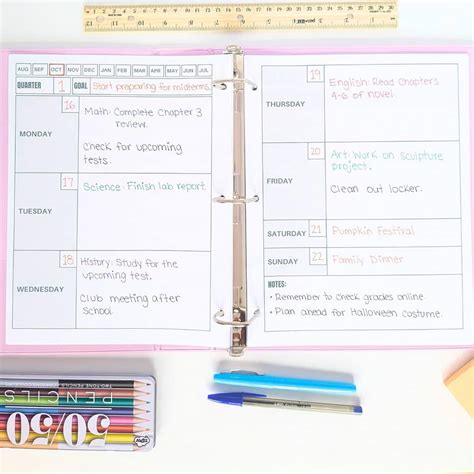 AUG SEP OCT NOV DEC JAN FEB MAR APR MAY JUN JUL
QUARTER 1 GOAL Start preparing for midterms.
MONDAY
16
Math: Complete Chapter 3
review.
Check for upcoming
tests.
TUESDAY
17
Science: Finish lab report.
WEDNESDAY
18
History: Study for the
upcoming test.
Club meeting after
school.
THURSDAY
19
English: Read Chapters
4-6 of novel.
FRIDAY
20
Art: Work on sculpture
project.
Clean out locker.
SATURDAY 21 Pumpkin Festival
SUNDAY 22 Family Dinner
NOTES:
• Remember to check grades online
• Plan ahead for Halloween costume.
50/50
PENCILS
TWO-TONE PENCILS